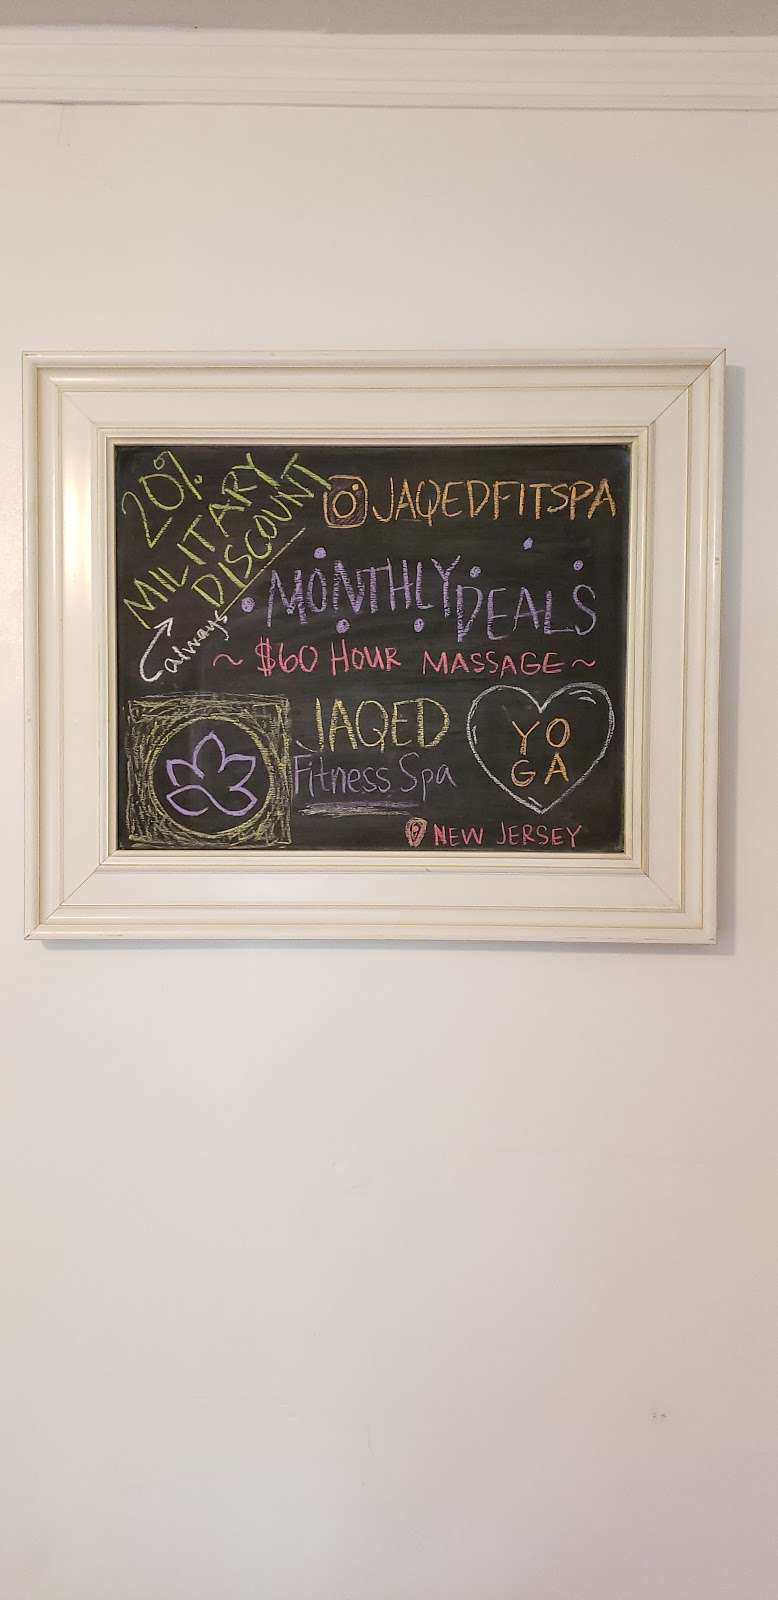 20%
MILITARY
DISCOUNT
always
JAQEDFITSPA
MONTHLY DEALS
~ $60 HOUR MASSAGE ~
JAQED
Fitness Spa
YO
GA
NEW JERSEY